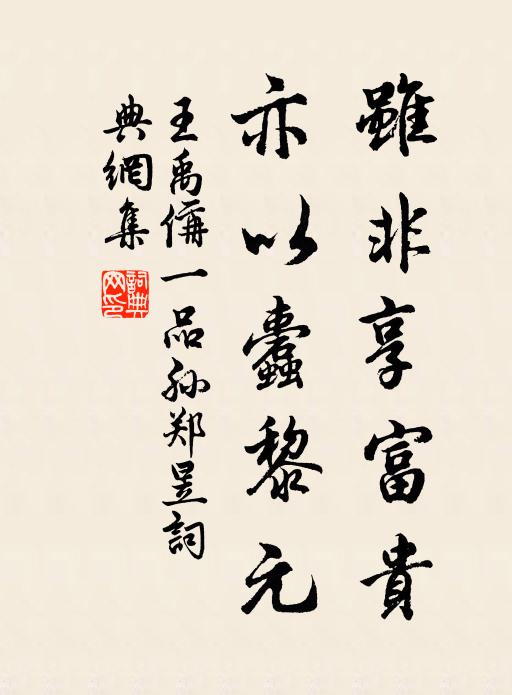 雖非享富貴
亦以蠹黎元
王禹偁一品孫郑昱詞
典網集
詞典網印